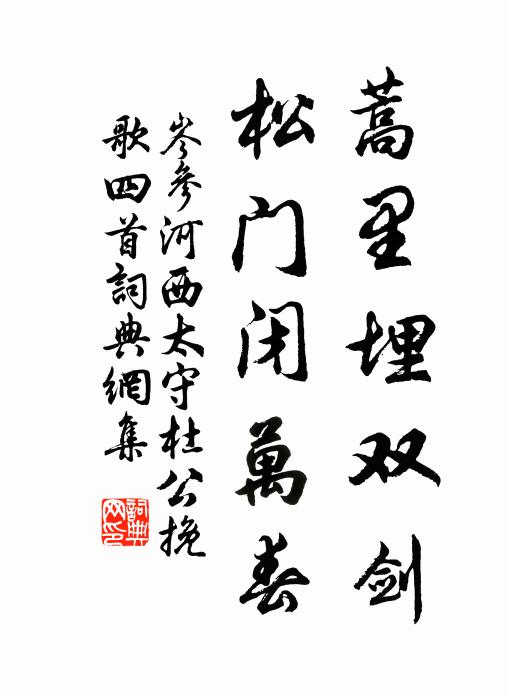 蒿里埋双剑
松门闭萬春
岑參河西太守杜公挽
歌四首詞典網集
詞典
网印